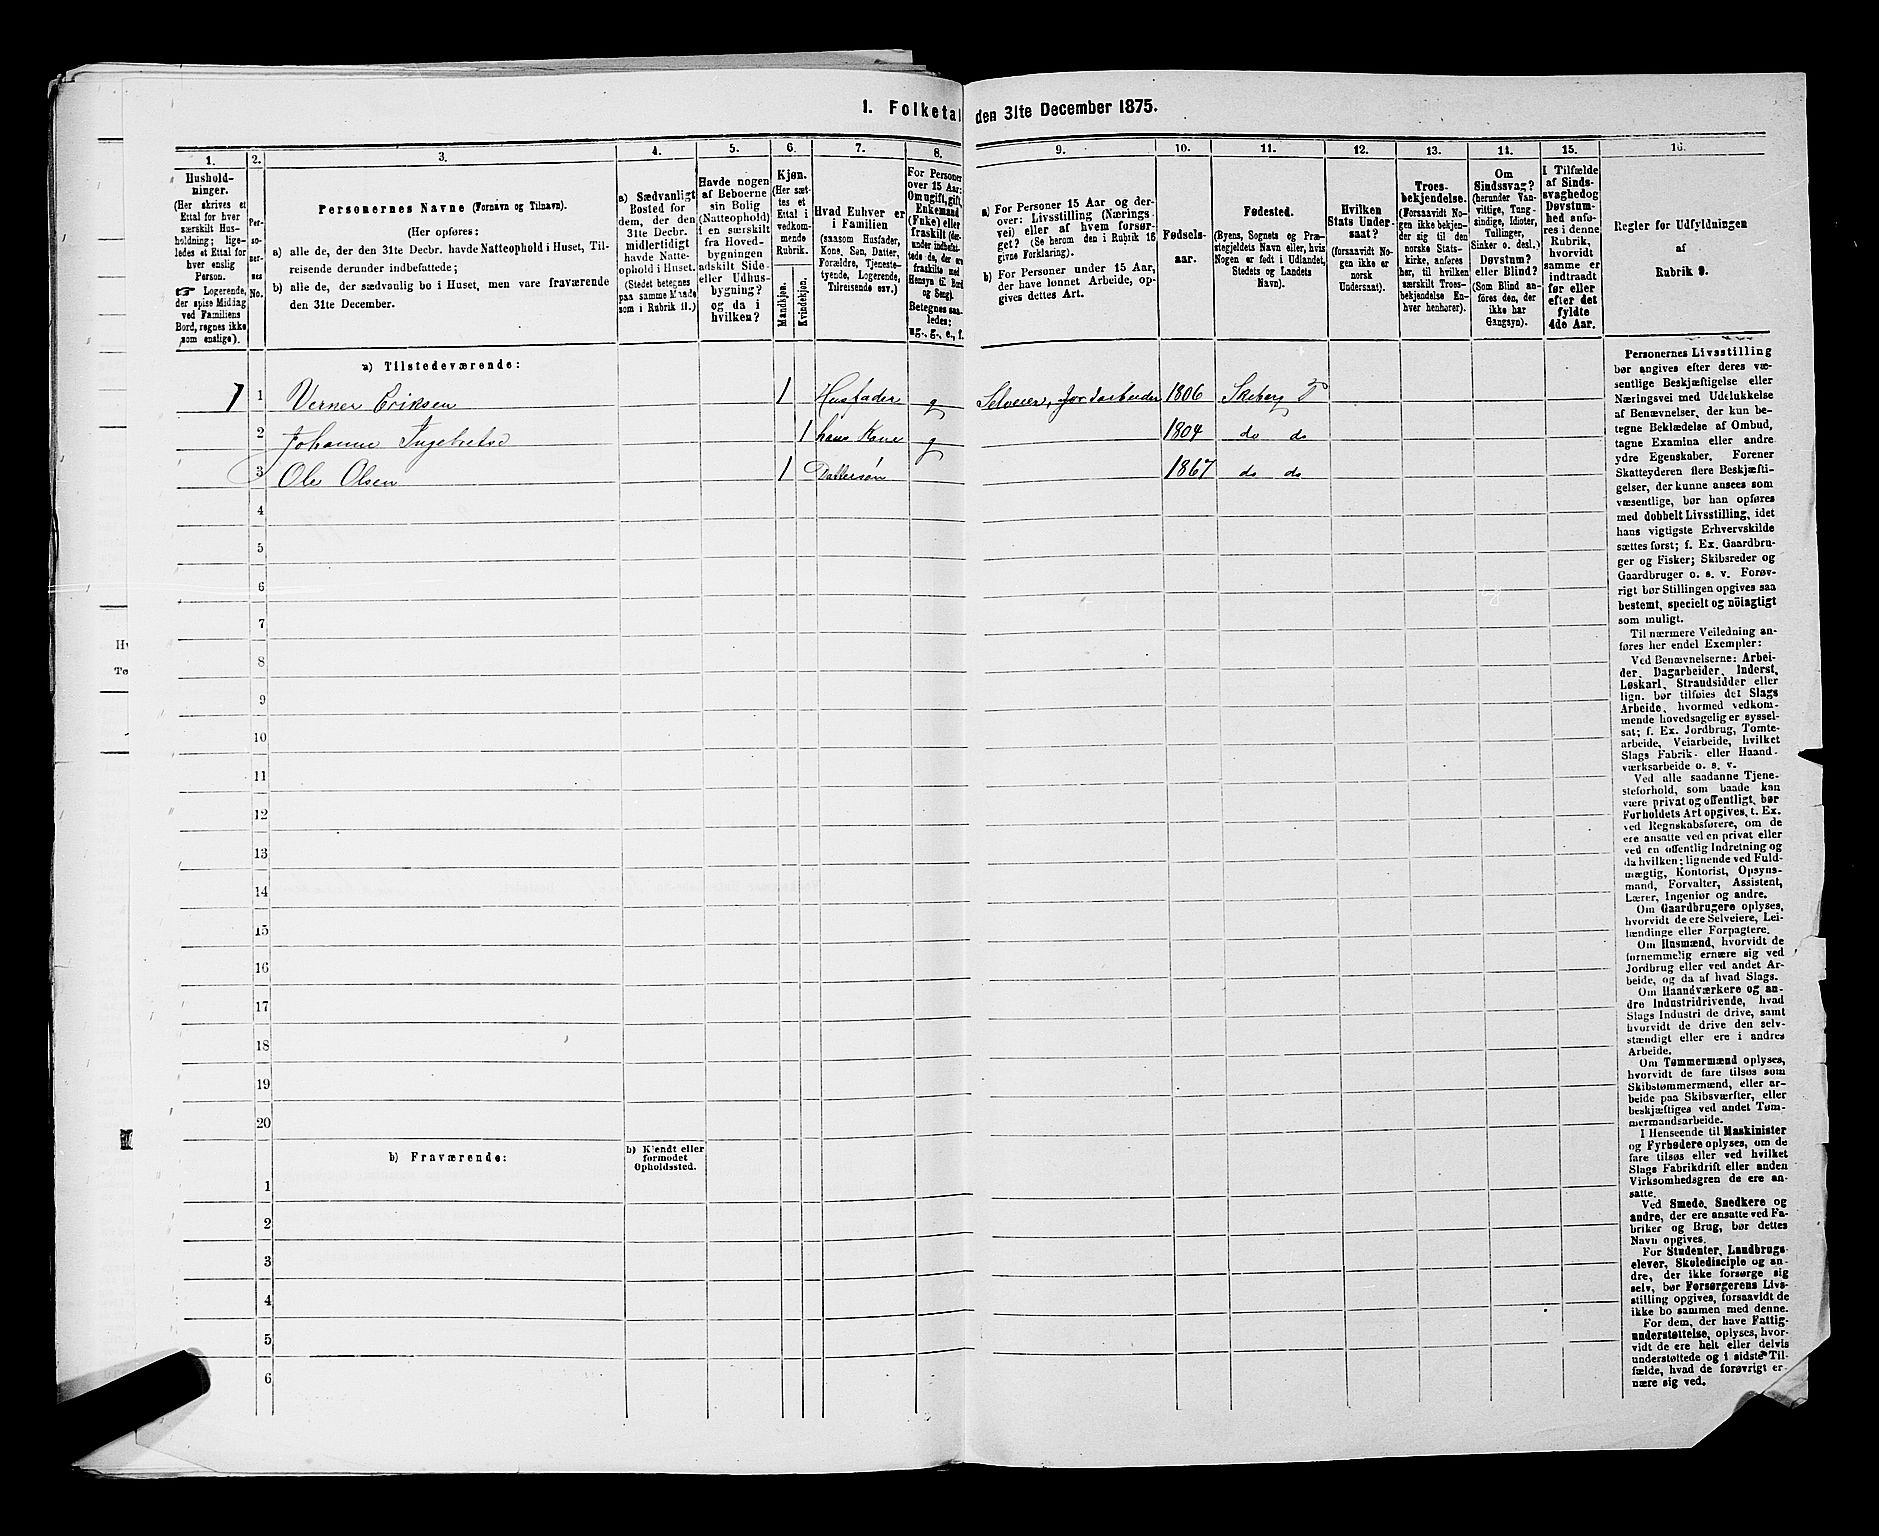 1. Folketal den 31te December 1875.
1. 2. 3. 4. 5. 6. 7. 8. 9. 10. 11. 12. 13. 14. 15. 16.
Hushold-
ninger.
(Her skrives et
Ettal for hver
særskilt Hus-
holdning; lige-
ledes et Ettal for
hver enslig
Person.
☞ Logerende,
der spise Middag
ved Familiens
Bord, regnes ikke
som enslige).
Per-
so-
ner-
nes
No.
Personernes Navne (Fornavn og Tilnavn).
(Her opføres:
a) alle de, der den 31te Decbr. havde Natteophold i Huset, Til-
reisende derunder indbefattede;
b) alle de, der sædvanlig bo i Huset, men vare fraværende
den 31te December.
a) Sædvanligt
Bosted for
dem, der den
31te Decbr.
midlertidigt
havde Natte-
ophold i Huset.
(Stedet betegnes
paa samme Maade
som i Rubrik 11.)
Havde nogen
af Beboerne
sin Bolig
(Natteophold)
i en særskilt
fra Hoved-
bygningen
adskilt Side-
eller Udhus-
bygning?
og da i
hvilken?
Kjøn.
(Her sæt-
tes et
Ettal i
vedkom-
mende
Rubrik.
Mandkjøn.
Kvindekjøn.
Hvad Enhver er
i Familien
(saasom Husfader,
Kone, Søn, Datter,
Forældre, Tjeneste-
tyende, Logerende,
Tilreisende osv.)
For Personer
over 15 Aar:
Om ugift, gift,
Enkemand
(Enke) eller
fraskilt (der-
under indbefat-
tede de, der ere
fraskilte med
Hensyn til Bord
og Seng).
Betegnes saa-
ledes:
ug., g., e., f.
a) For Personer 15 Aar og der-
over: Livsstilling (Nærings-
vei) eller af hvem forsør-
get? (Se herom den i Rubrik 16
givne Forklaring).
b) For Personer under 15 Aar,
der have lønnet Arbeide, op-
gives dettes Art.
Fødsels-
aar.
Fødested.
(Byens, Sognets og Præ-
stegjeldets Navn eller, hvis
Nogen er født i Udlandet,
Stedets og Landets
Navn).
Hvilken
Stats Under-
saat?
(forsaavidt No-
gen ikke er
norsk
Undersaat).
Troes-
bekjendelse.
(Forsaavidt No-
gen ikke bekjen-
der sig til den
norske Stats-
kirke, anføres
her, til hvilken
særskilt Troes-
bekjendelse En-
hver henhører).
Om
Sindssvag?
(herunder Van-
vittige, Tung-
sindige, Idioter,
Tullinger,
Sinker o. desl.)
Døvstum?
eller Blind?
(Som Blind an-
føres den, der
ikke har
Gangsyn).
I Tilfælde
af Sinds-
svaghed og
Døvstum-
hed anfø-
res i denne
Rubrik,
hvorvidt
samme er
indtraadt
før eller
efter det
fyldte
4de Aar.
Regler for Udfyldningen
af
Rubrik 9.
a) Tilstedeværende:
1 1 Verner Eriksen 1 Husfader g Selveier, Jordarbeider 1806 Skeberg
2 Johanne 1 hans Kone g 1804 do do
3 Ole Olsen 1 Dattersøn 1867 do do
4
5
6
7
8
9
10
11
12
13
14
15
16
17
18
19
20
b) Fraværende:
b) Kjendt eller
formodet
Opholdssted.
1
2
3
4
5
6
Personernes Livsstilling
bør angives efter deres væ-
sentlige Beskjæftigelse eller
Næringsvei med Udelukkelse
af Benævnelser, der kun be-
tegne Beklædelse af Ombud,
tagne Examina eller andre
ydre Egenskaber. Forener
Skatteyderen flere Beskjæfti-
gelser, der kunne ansees som
væsentlige, bør han opføres
med dobbelt Livsstilling, idet
hans vigtigste Erhvervskilde
sættes først; f. Ex. Gaardbru-
ger og Fisker; Skibsreder og
Gaardbruger o. s. v. Forøv-
rigt bør Stillingen opgives saa
bestemt, specielt og nöiagtigt
som muligt.
Til nærmere Veiledning an-
føres her endel Exempler:
Ved Benævnelserne: Arbei-
der, Dagarbeider, Inderst,
Løskarl, Strandsidder eller
lign. bør tilføies det Slags
Arbeide, hvormed vedkom-
mende hovedsagelig er syssel-
sat; f. Ex. Jordbrug, Tomte-
arbeide, Veiarbeide, hvilket
Slags Fabrik- eller Haand-
værksarbeide o. s. v.
Ved alle saadanne Tjene-
steforhold, som baade kan
være privat og offentligt, bør
Forholdets Art opgives, t. Ex.
ved Regnskabsførere, om de
ere ansatte ved en privat eller
ved en offentlig Indretning og
da hvilken; lignende ved Fuld-
mægtig, Kontorist, Opsyns-
mand, Forvalter, Assistent,
Lærer, Ingeniør og andre.
Om Gaardbrugere oplyses,
hvorvidt de ere Selveiere, Lei-
lændinge eller Forpagtere.
Om Husmænd, hvorvidt de
fornemmelig ernære sig ved
Jordbrug eller ved andet Ar-
beide, og da af hvad Slags.
Om Haandværkere og an-
dre Industridrivende, hvad
Slags Industri de drive, samt
hvorvidt de drive den selv-
stændigt eller ere i andres
Arbeide.
Om Tømmermænd oplyses,
hvorvidt de fare tilsøs som
Skibstømmermænd, eller ar-
beide paa Skibsværfter, eller
beskjæftiges ved andet Tøm-
mermandsarbeide.
I Henseende til Maskinister
og Fyrbødere oplyses, om de
fare tilsøs eller ved hvilket
Slags Fabrikdrift eller anden
Virksomhedsgren de ere an-
satte.
Ved Smede, Snedkere og
andre, der ere ansatte ved Fa-
briker og Brug, bør dettes
Navn opgives.
For Studenter, Landbrugs-
elever, Skoledisciple og an-
dre, der ikke forsørge sig
selv, bør Forsørgerens Livs-
stilling opgives, forsaavidt de
ikke bo sammen med denne.
For dem, der have Fattig-
understøttelse, oplyses, hvor-
vidt de ere helt eller delvis
understøttede og i sidste Til-
fælde, hvad de forøvrigt er-
nære sig ved.